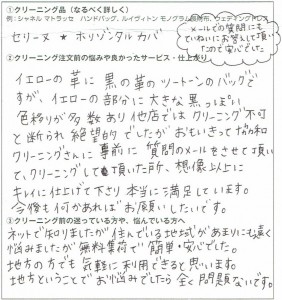 ①クリーニング品（なるべく詳しく）
例：シャネル マトラッセ ハンドバッグ、ルイヴィトン モノグラム長財布、ウェディングドレス
セリーヌ ★ ホリゾンタル カバ
メールでの質問にも
ていねいにお答えして頂い
たので安心でした
②クリーニング注文前の悩みや良かったサービス・仕上がり
イエローの革に黒の革のツートーンのバッグで
すが、イエローの部分に大きな黒っぽい
色移りが多数あり他店ではクリーニング不可
と断られ絶望的でしたがおもいきって
クリーニングさんに事前に質問のメールをさせて頂い
て、クリーニングして頂いた所、想像以上に
キレイに仕上げて下さり本当に満足しています。
今後も何かあればお願いしたいです。
③クリーニング前の迷っている方や、悩んでいる方へ
ネットで知りましたが住んでいる地域があまりにも遠く
悩みましたが無料集荷で簡単・安心でした。
地方の方でも気軽に利用できると思います。
地方ということでお悩みでしたら全く問題ないです。